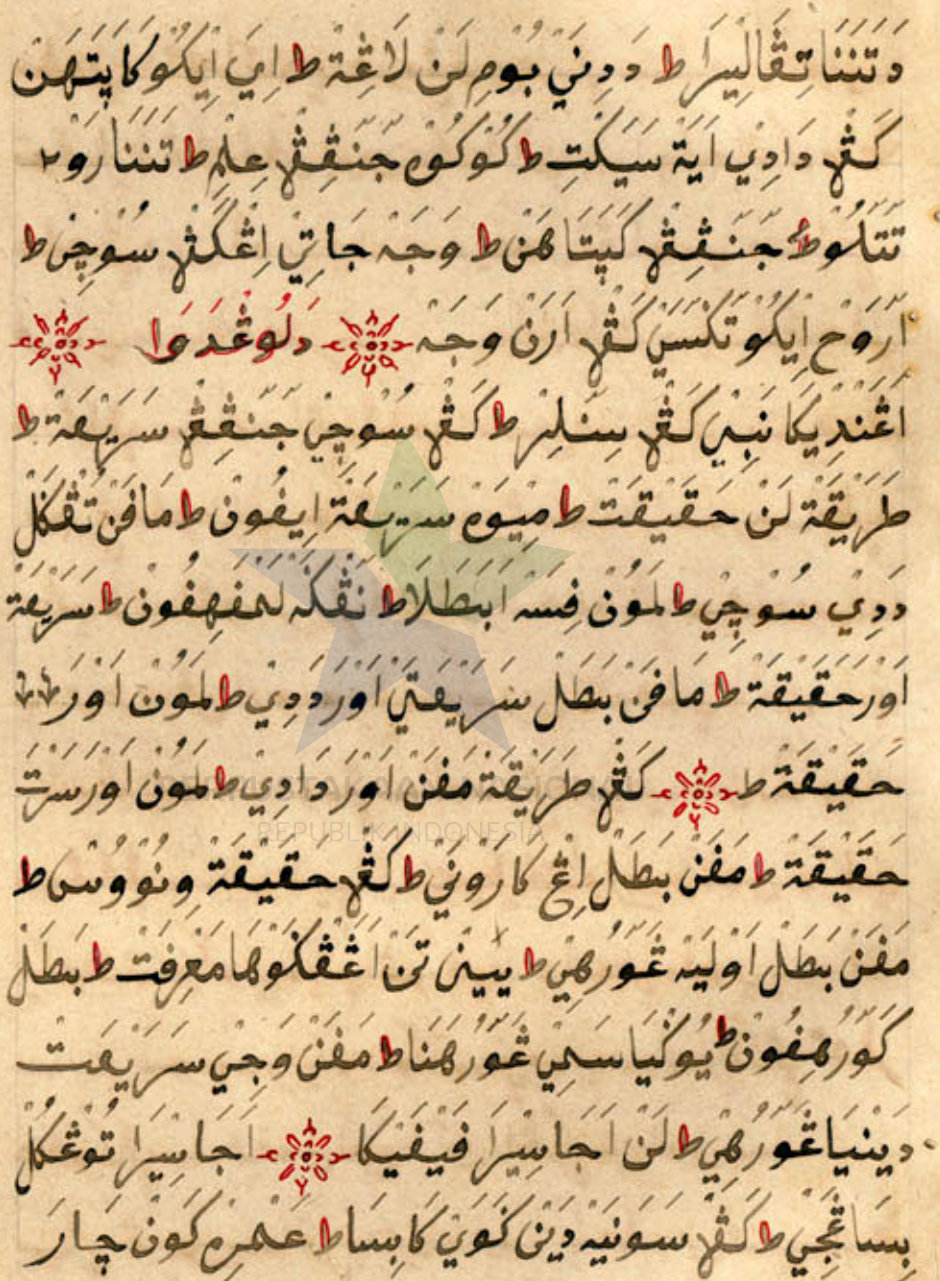 دَتَنَنَا تِڠَالِيْسِرَا ط دَدِنَيْ بُوْمِ لَنْ لَاڠِۃْ ط اِيَ اِيْكُوْ كَاڽَتَهَنْ
كَڠْ دَادِيْ اَيَةْ سَيَكْتِ ط كُوْكُوْهْ جَنَڠِڠْ عِلْمِ ط تَنَنَا رَوْ٢
تَتَلُوْ ط جَنَڠِڠْ كَڽَتَاهَنْ ط وَجَهْ جَاتِيْ اِڠْكَڠْ سُوْچِيْ ط
اَرَوْحْ اِيْكُوْ تَكْسَيْ كَڠْ اَرَنْ وَجَهْ دَلُوْڠْدَوَا
اَڠَنْدِيْكَا نَبِيْ كَڠْ سِنَلِيْرْ ط كَڠْ سُوْچِيْ جَنَڠِڠْ سَرِيْعَةْ ط
طَرِيْقَةْ لَنْ حَقِيْقَتْ ط مِيْوَهْ سَرِيْعَةْ اِيْفُوْنْ ط مَافَنْ تُڠْكَلْ
دَدِيْ سُوْچِيْ ط لَمُوْنْ فِسَهْ اَبَطَلَا ط نَڠْكَهْ لَمْفَهِفُوْنْ ط سَرِيْعَةْ
اَوْرَ حَقِيْقَةْ ط مَافَنْ بَطَلْ سَرِيْعَتَيْ اَوْرَ دَدِيْ ط لَمُوْنْ اَوْرَ
حَقِيْقَةْ ط كَڠْ طَرِيْقَةْ مَفَنْ اَوْرَ دَادِيْ ط لَمُوْنْ اَوْرَ سَرْتَ
حَقِيْقَةْ ط مَفَنْ بَطَلْ اِڠْ كَارَوْنَيْ ط كَڠْ حَقِيْقَةْ وِنُوْوُسْ ط
مَفَنْ بَطَلْ اَوْلِيَهْ ڠَوْرُهِيْ ط يَيْنْ تَنْ اَڠْڠَكَوْهَا مَعْرِفَتْ ط بَطَلْ
كَوْرُهِفُوْنْ ط يُوْكْيَا سَمِيْ ڠَوْرُهَنَا ط مَفَنْ وَجِيْ سَرِيْعَتْ
دَيْنْيَا ڠَوْرُهِيْ ط لَنْ اَجَا سِيْرَا فَيْفَيْكَا اَجَا سِيْرَا تُوْڠْكُلْ
بِسَا ڠَجِيْ ط كَڠْ سَوْنِيَهْ دَيْنْ كَوَيْ كَابِسَا ط عِلْمِرَهْ كَوْنْ چَارَ